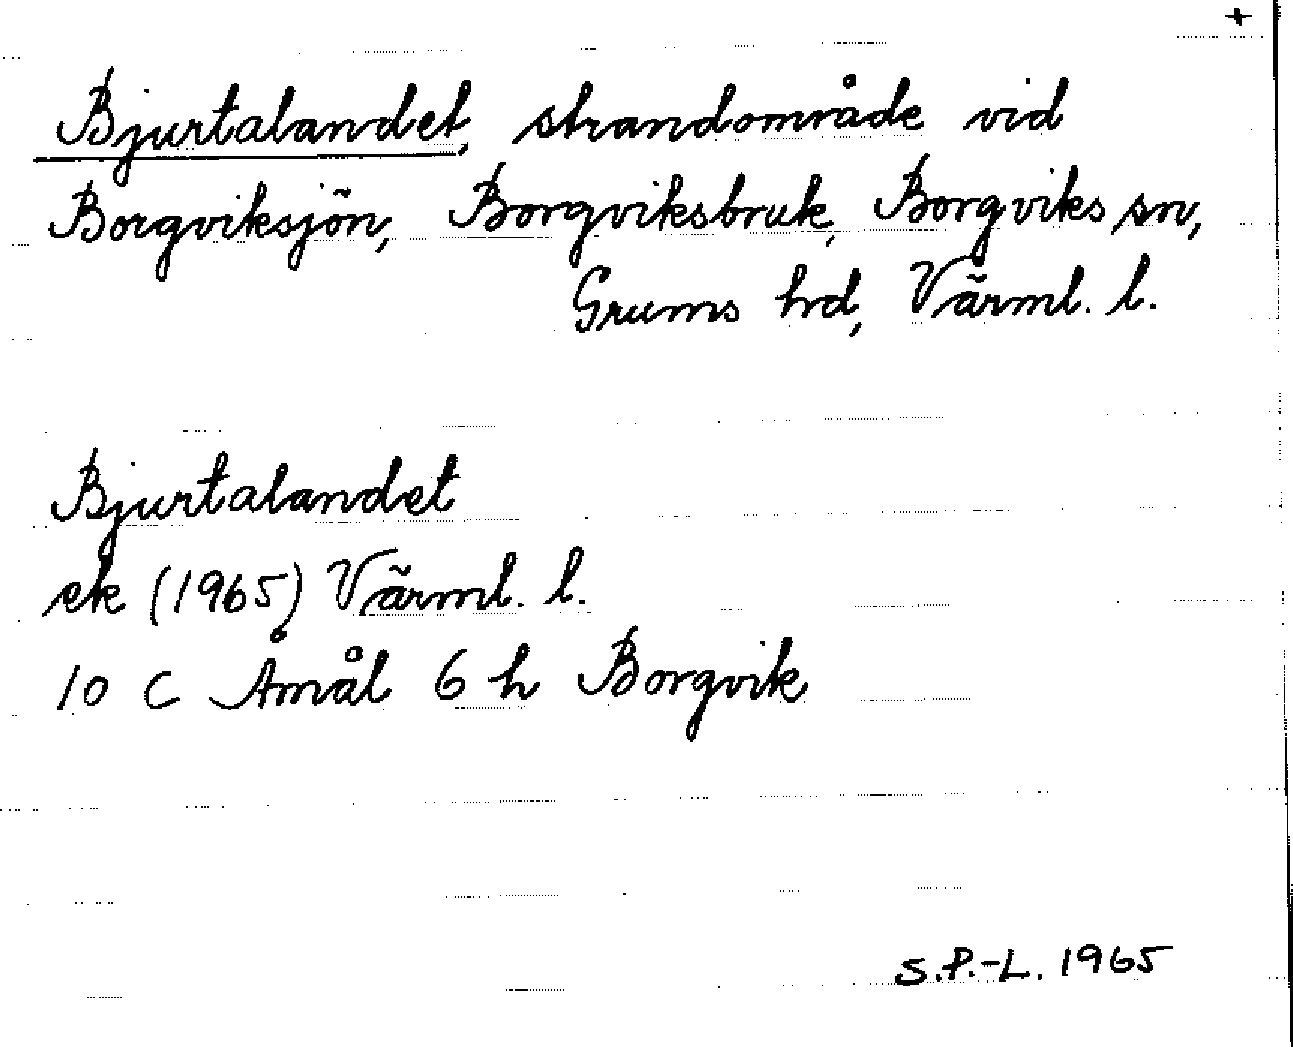 +
Bjurtalandet, strandområde vid
Borgviksjön, Borgviksbruk, Borgviks sn,
Grums hd, Värml. l.
Bjurtalandet
ek (1965) Värml. l.
10 C Åmål 6 h Borgvik
S.P.-L. 1965